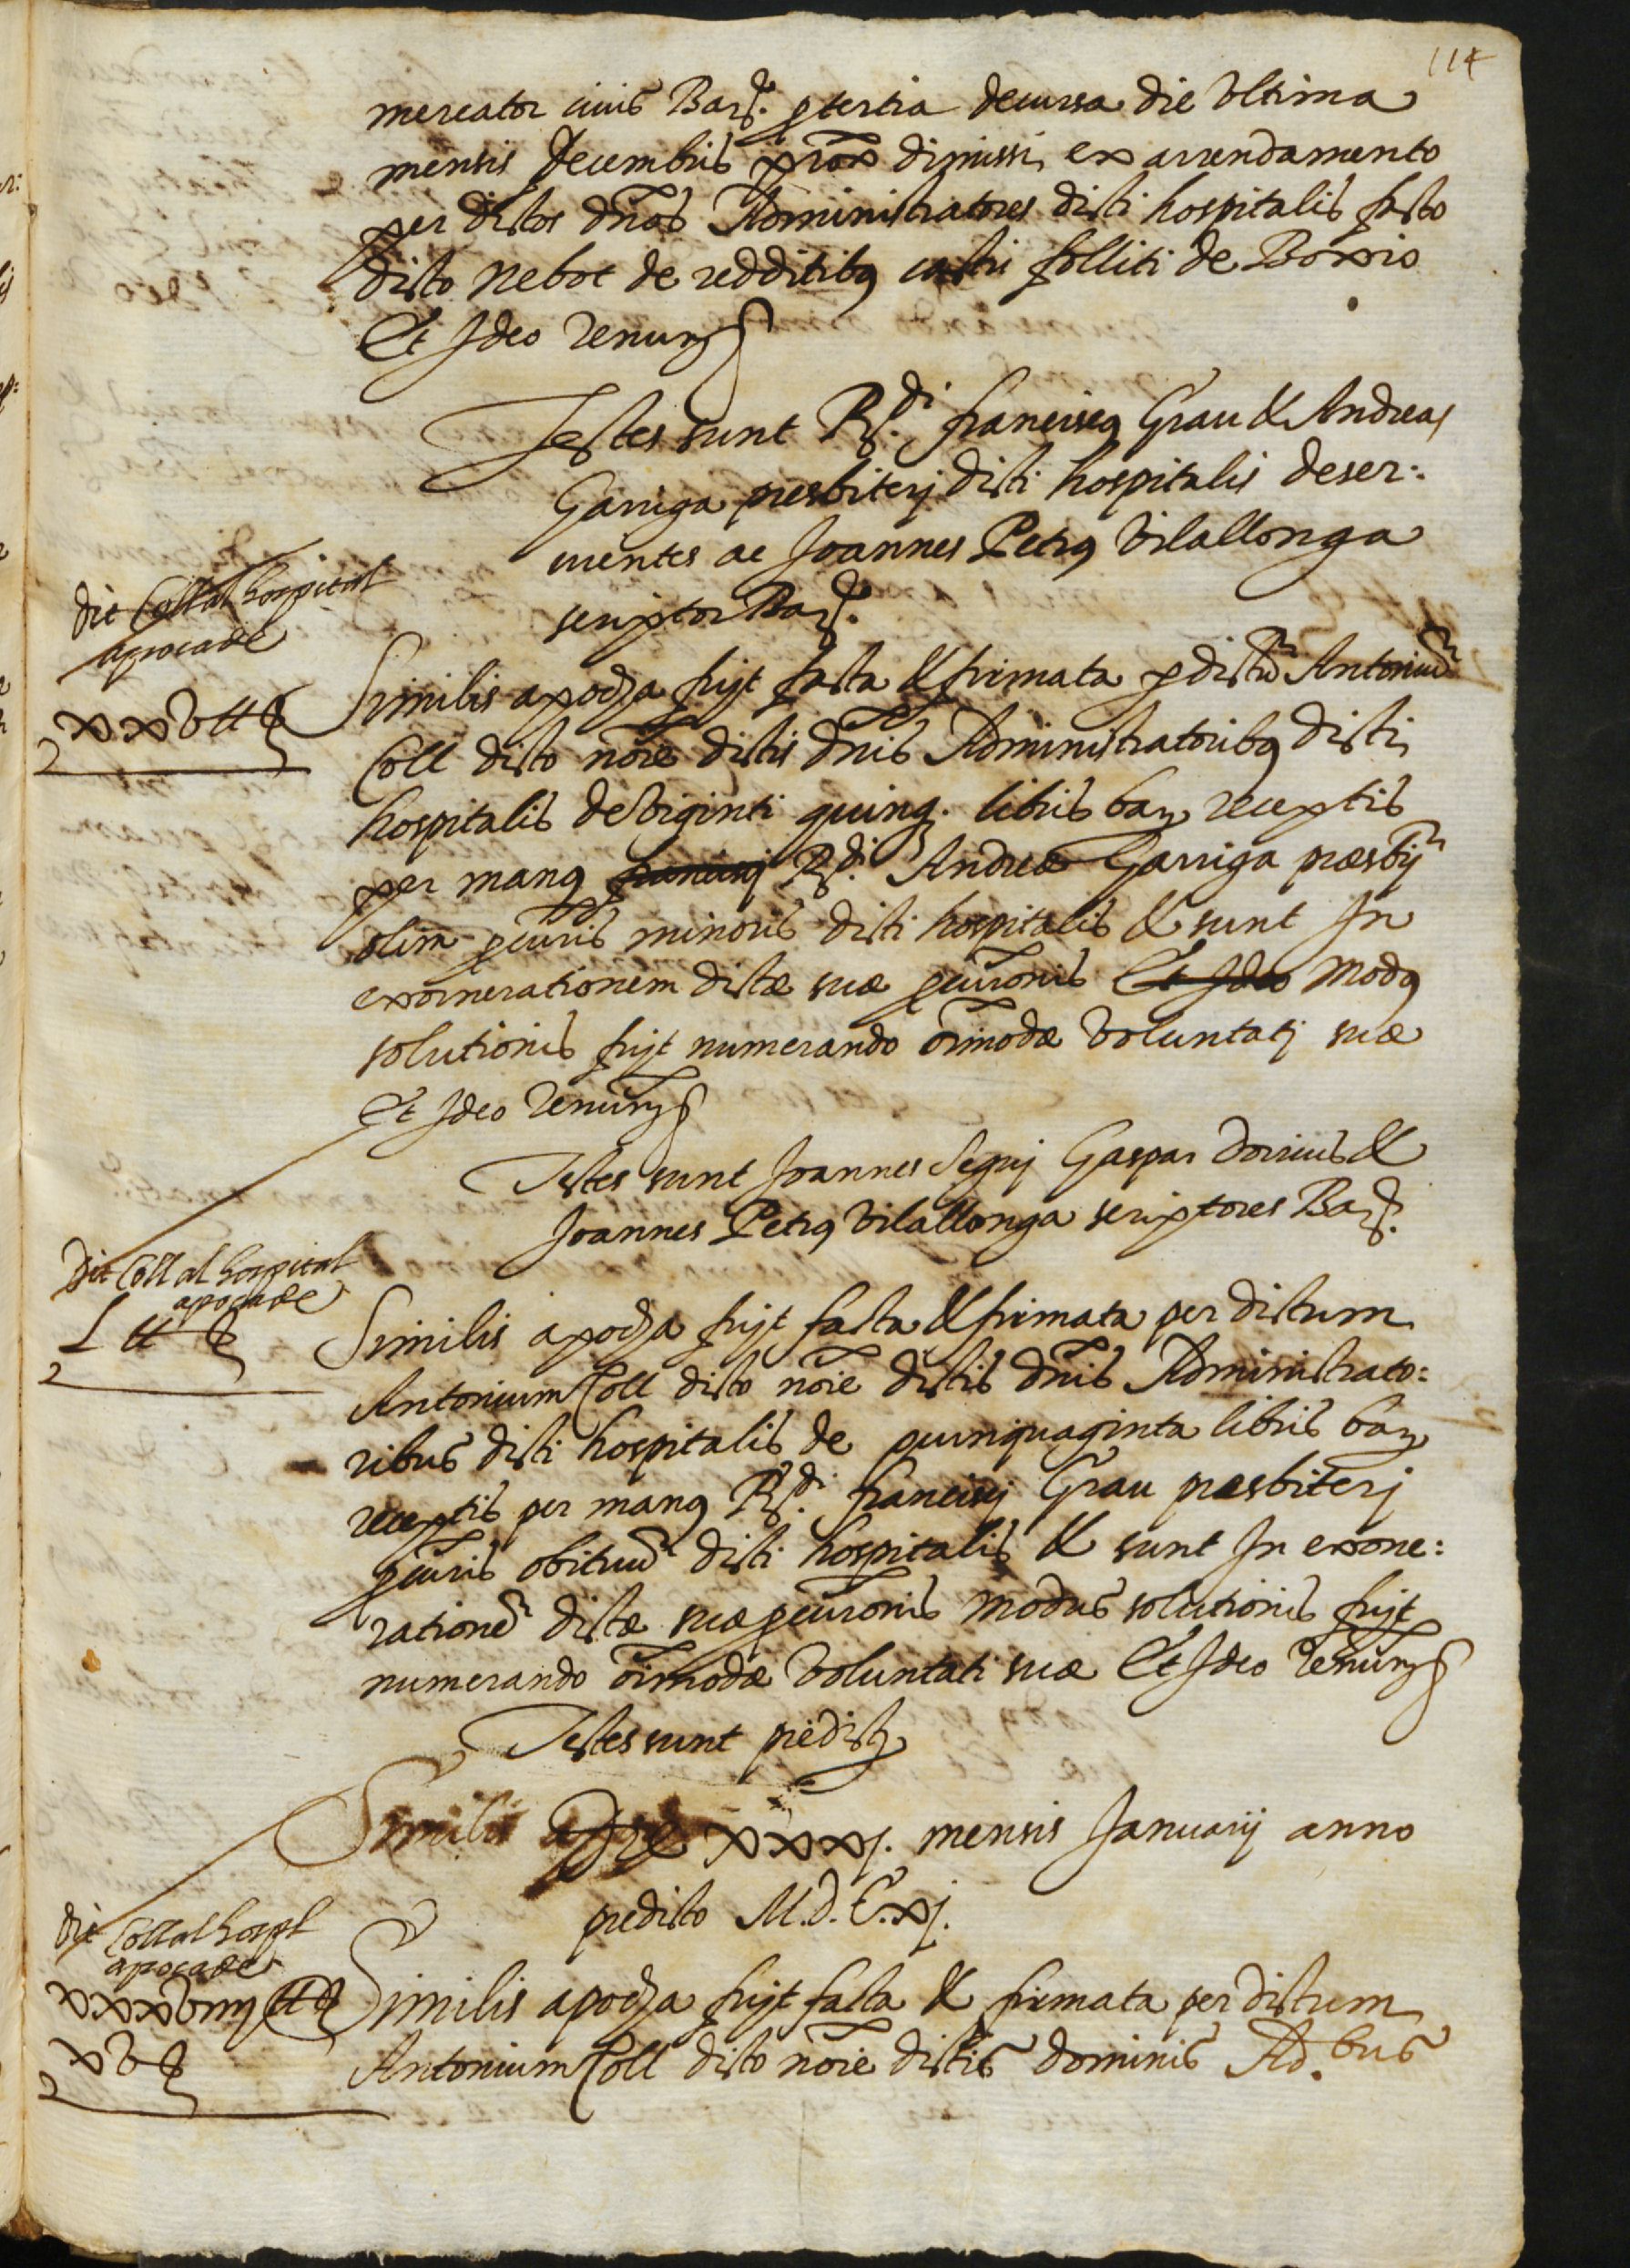 114
mercator civis Barç. p tertia decursa die ultima
mensis decembris prox dimissi ex arrendamento
per dictos dnos Administratores dicti hospitalis facto
dicto Nebot de redditibus castri folliti de Boxio
Et Ideo renun
Testes sunt Rdi. franciscus Grau & Andreas
Garriga presbiteri dicti hospitalis deser:
vientes ac Joannes Petrus Vilallonga
scriptor Barç.
dit Coll al hospital
apocade
xxv ll s
Similis apocha fuit facta & firmata p dictum Antonium
Coll dicto noie dictis dnis Administratoribus dicti
hospitalis de viginti quinq. libris bar receptis
per manus francisci Rdi. Andreæ Garriga præsbri
olim pcuris minoris dicti hospitalis & sunt In
exornerationem dictæ suæ pcuronis Et Ideo modus
solutionis fuit numerando oimodæ voluntati suæ
Et Ideo renun
Testes sunt Joannes Seguj Gaspar dorrius &
Joannes Petrus Vilallonga scriptores Barç.
dit Coll al hospital
apocade
L ll s
Similis apocha fuit facta & firmata per dictum
Antonium Coll dicto noie dictis dnis Administrato:
ribus dicti hospitalis de quinquaginta libris bar
receptis per manus Rdi. francisci Grau præsbiteri
pcuris obituum dicti hospitalis & sunt In exone:
rationem dictæ suæ pcuronis modus solutionis fuit
numerando oimodæ voluntati suæ Et Ideo renun
Testes sunt predicti
Similis xxxj. mensis Januarij anno
predicto M.D.C.xj.
dit Coll al hospl
apocade
xxxviiij ll s
xv s
Similis apocha fuit facta & firmata per dictum
Antonium Coll dicto noie dictis dominis Ad.bus